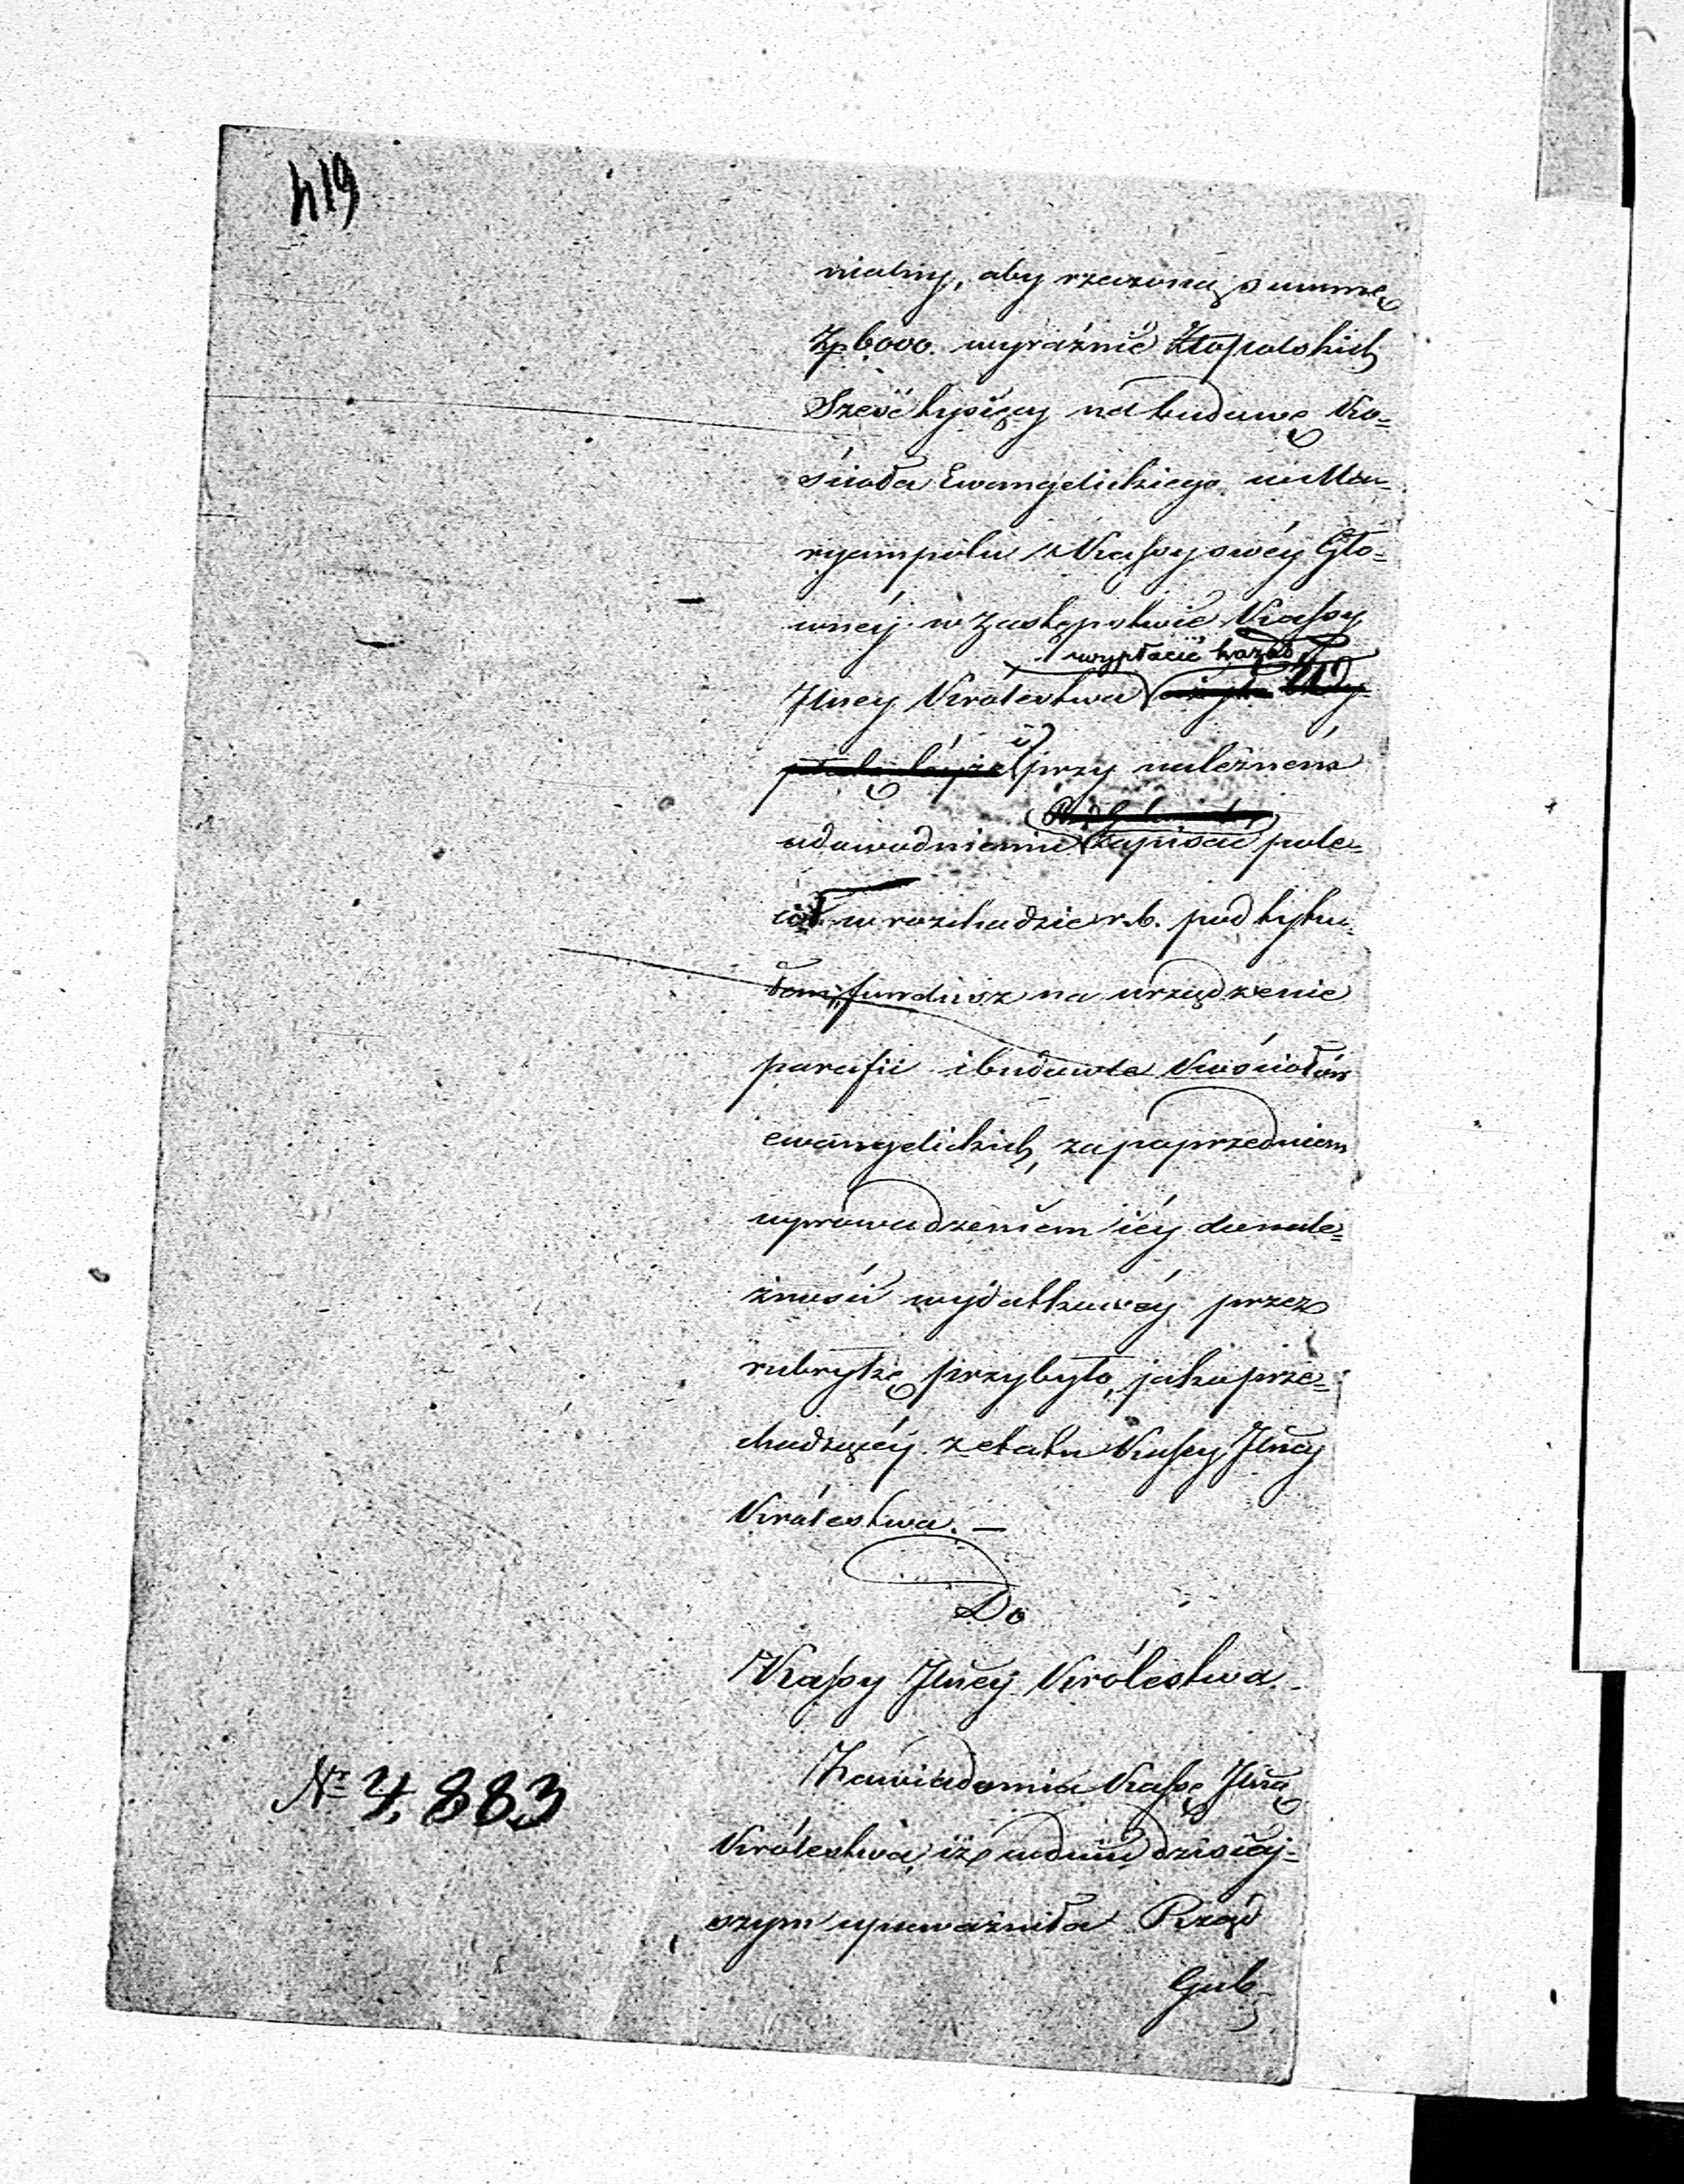 419
nialny, aby rzeczoną summę
Zp 6000. wyraźnie Złotpolskich
Sześć tysięcy na budowę Ko=
ścioła Ewangelickiego w Ma=
ryampolu z Kassy swéy Głó=
wnéy w zastępstwie Kassy
wypłacić kazał
Jlnéy Królestwa
i przy należném
udowodnieniu zapisać pole=
cił w rozchodzie r. b. pod tytu=
łem „fundusz na urządzenie
parafii i budowle Kościołów
ewangelickich, za poprzedniem
wprowadzeniem iéy do nale=
żności wydatkowéy przez
rubrykę przybyło, jako prze=
chodzącéy z etatu Kassy Jlnéy
Królestwa. —
Do
Kassy Jlnéy Królestwa.
Nr 4,883
Zawiadomia Kassę Jlną
Królestwa, iż w dniu dzisiéj=
szym upoważniła Rząd
Gub